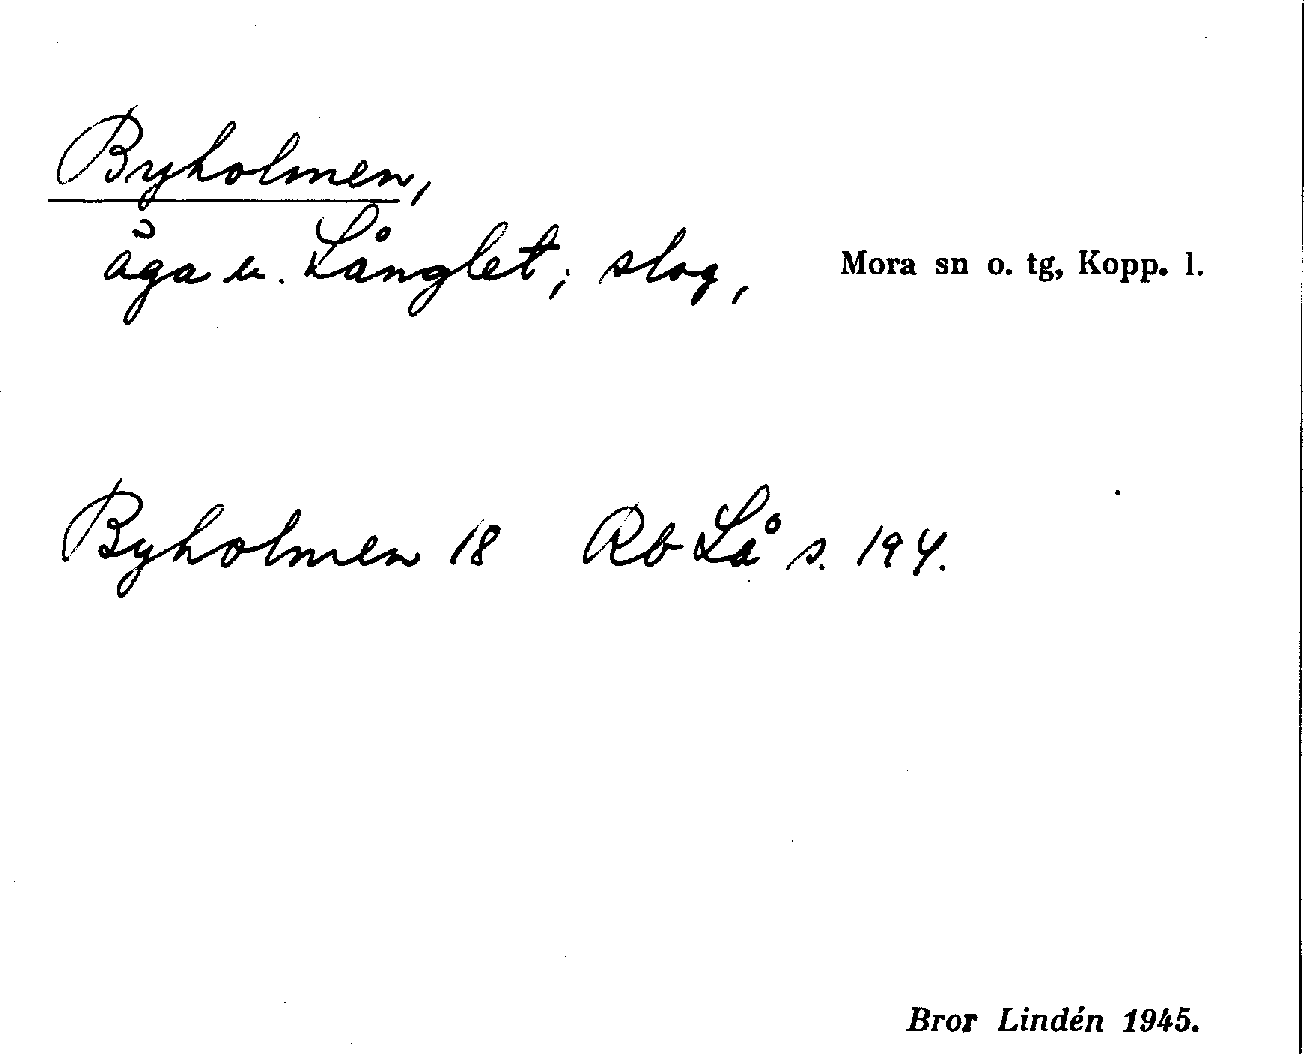 Byholmen,
äga u. Långlet; slog,
Mora sn o. tg, Kopp. l.
Byholmen 18 Rb Lå s. 194.
Bror Lindén 1945.